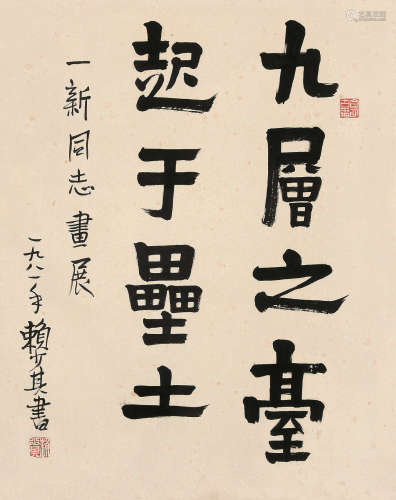 九層之臺
起于壘土
一新同志畫展
一九八一年賴少其書